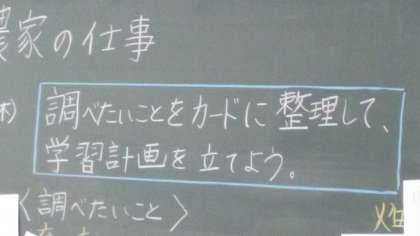 農家の仕事
木)
調べたいことをカードに整理して、
学習計画を立てよう。
〈調べたいこと〉
畑